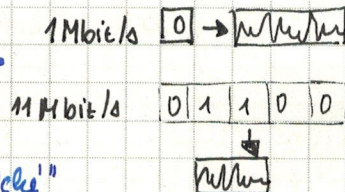 1 Mbit/s 0
11 Mbit/s 0 1 1 0 0